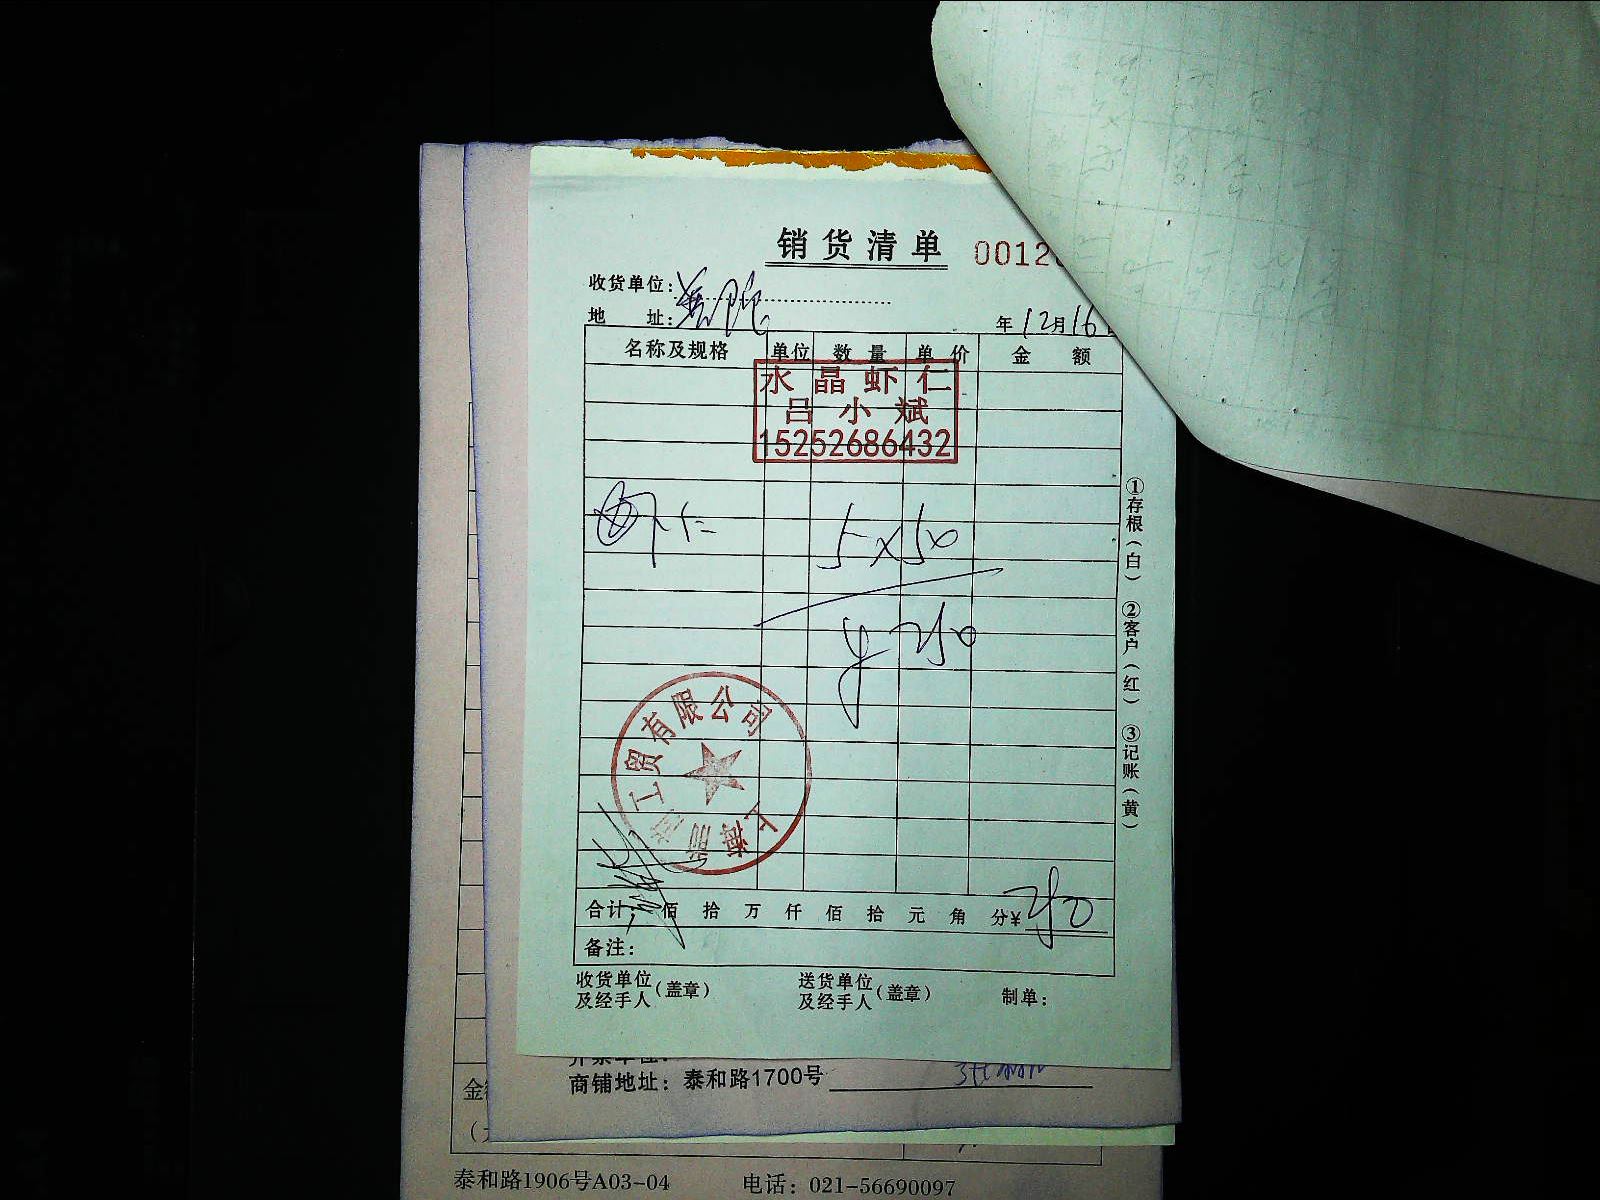 销货清单 0012
收货单位：
地 址：
年12月16
名称及规格 单位 数量 单价 金额
水晶虾仁
吕小斌
15252686432
虾仁 5×50
¥250
上海 工贸有限公司
合计： 佰 拾 万 仟 佰 拾 元 角 分¥250
备注：
收货单位及经手人（盖章） 送货单位及经手人（盖章） 制单：
①存根（白） ②客户（红） ③记账（黄）
商铺地址：泰和路1700号
泰和路1906号A03-04 电话：021-56690097